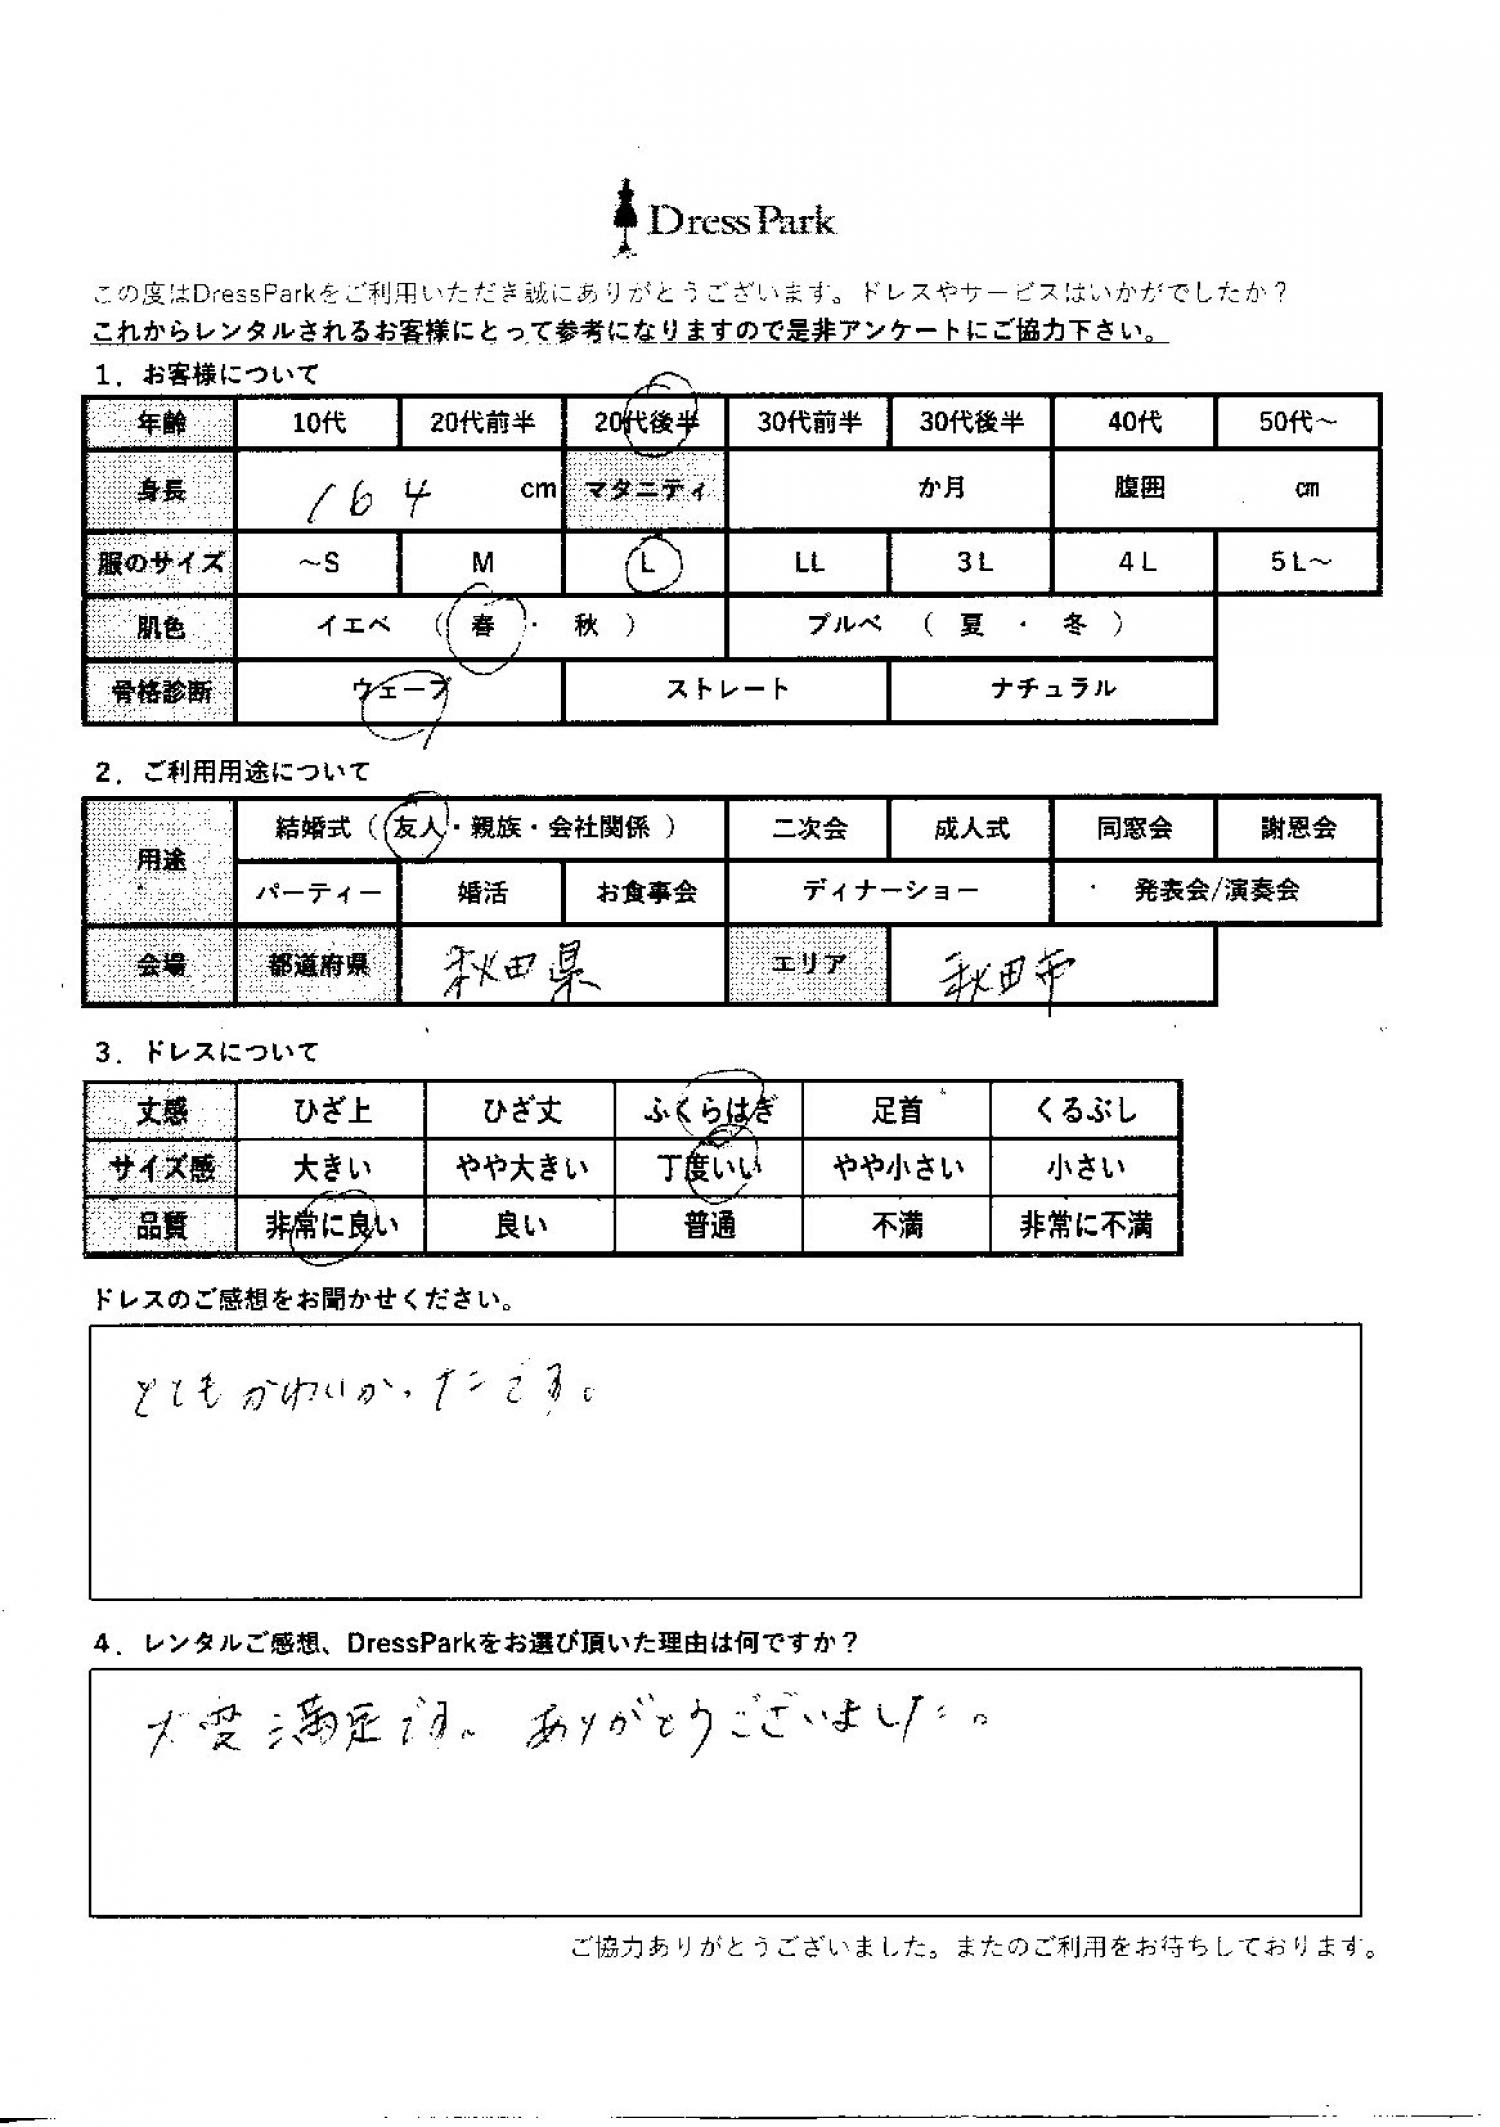 DressPark
この度はDressParkをご利用いただき誠にありがとうございます。ドレスやサービスはいかがでしたか？
これからレンタルされるお客様にとって参考になりますので是非アンケートにご協力下さい。
1．お客様について
年齢 10代 20代前半 20代後半 30代前半 30代後半 40代 50代～
身長 164 cm マタニティ か月 腹囲 cm
服のサイズ ～S M L LL 3L 4L 5L～
肌色 イエベ （ 春 ・ 秋 ） ブルベ （ 夏 ・ 冬 ）
骨格診断 ウェーブ ストレート ナチュラル
2．ご利用用途について
用途 結婚式（ 友人・親族・会社関係 ） 二次会 成人式 同窓会 謝恩会
パーティー 婚活 お食事会 ディナーショー 発表会/演奏会
会場 都道府県 秋田県 エリア 秋田市
3．ドレスについて
丈感 ひざ上 ひざ丈 ふくらはぎ 足首 くるぶし
サイズ感 大きい やや大きい 丁度いい やや小さい 小さい
品質 非常に良い 良い 普通 不満 非常に不満
ドレスのご感想をお聞かせください。
とてもかわいかったです。
4．レンタルご感想、DressParkをお選び頂いた理由は何ですか？
大変満足です。ありがとうございました。
ご協力ありがとうございました。またのご利用をお待ちしております。